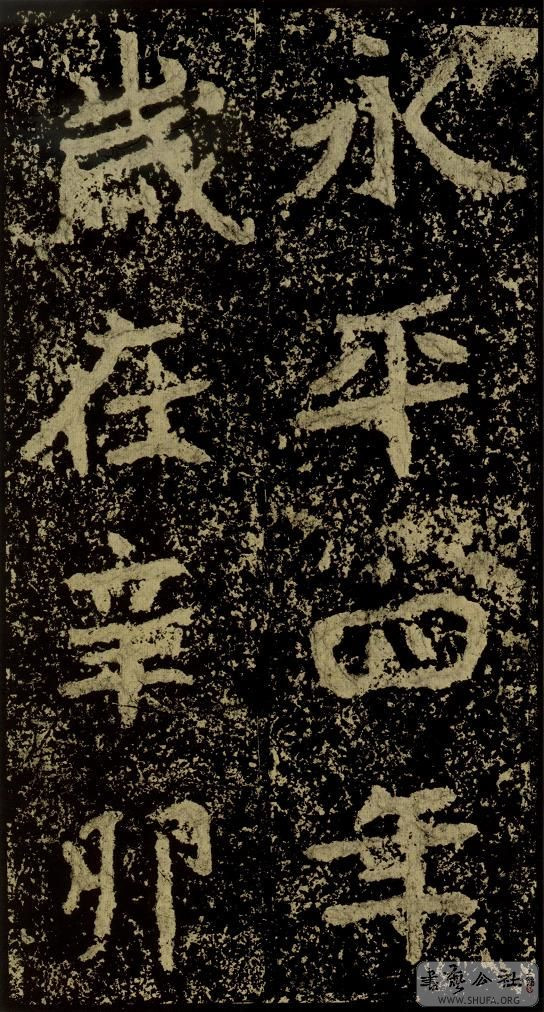 永平四年
歲在辛卯
書藝公社
WWW.SHUFA.ORG